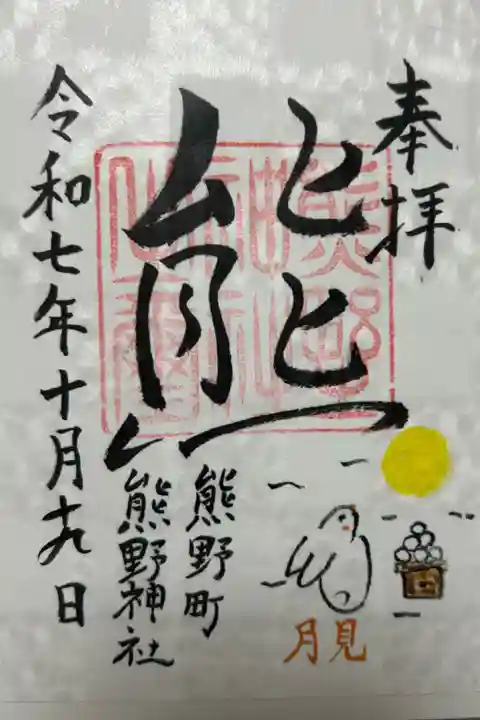 奉拝
熊
熊野町
熊野神社
令和七年十月十九日
月見